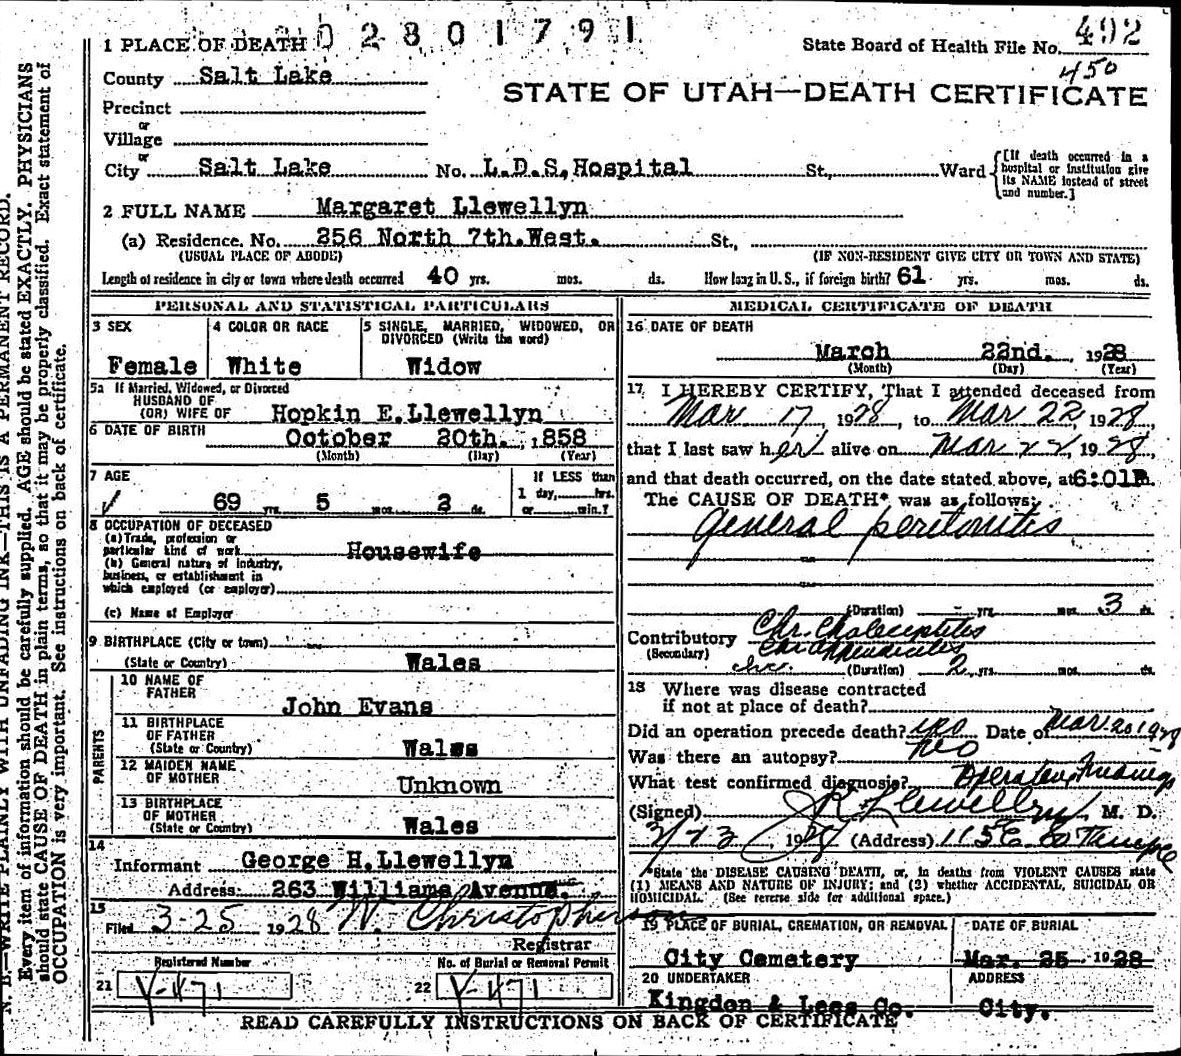 N. B.—WRITE PLAINLY WITH UNFADING INK—THIS IS A PERMANENT RECORD.
Every item of information should be carefully supplied. AGE should be stated EXACTLY. PHYSICIANS
should state CAUSE OF DEATH in plain terms, so that it may be properly classified. Exact statement of
OCCUPATION is very important. See instructions on back of certificate.
02801791
State Board of Health File No. 492
450
STATE OF UTAH—DEATH CERTIFICATE
1 PLACE OF DEATH
County Salt Lake
Precinct
or
Village
or
City Salt Lake No. L.D.S. Hospital St., Ward
[If death occurred in a
hospital or institution give
its NAME instead of street
and number.]
2 FULL NAME Margaret Llewellyn
(a) Residence. No. 256 North 7th.West. St.,
(USUAL PLACE OF ABODE) (IF NON-RESIDENT GIVE CITY OR TOWN AND STATE)
Length of residence in city or town where death occurred 40 yrs. mos. ds. How long in U. S., if foreign birth? 61 yrs. mos. ds.
PERSONAL AND STATISTICAL PARTICULARS
3 SEX
Female
4 COLOR OR RACE
White
5 SINGLE, MARRIED, WIDOWED, OR
DIVORCED (Write the word)
Widow
5a If Married, Widowed, or Divorced
HUSBAND OF
(OR) WIFE OF Hopkin E.Llewellyn
6 DATE OF BIRTH October 20th. , 1858
(Month) (Day) (Year)
7 AGE
69 yrs. 5 mos. 2 ds.
If LESS than
1 day, hrs.
or min.?
8 OCCUPATION OF DECEASED
(a) Trade, profession or
particular kind of work Housewife
(b) General nature of industry,
business, or establishment in
which employed (or employer)
(c) Name of Employer
9 BIRTHPLACE (City or town)
(State or Country) Wales
PARENTS
10 NAME OF
FATHER
John Evans
11 BIRTHPLACE
OF FATHER
(State or Country) Wales
12 MAIDEN NAME
OF MOTHER Unknown
13 BIRTHPLACE
OF MOTHER
(State or Country) Wales
14
Informant George H.Llewellyn
Address: 263 Williams Avenue.
15
Filed 3-25 1928 W. Christopherson
Registrar
Registered Number
21 Y-471
No. of Burial or Removal Permit
22 Y-471
MEDICAL CERTIFICATE OF DEATH
16 DATE OF DEATH
March 22nd. 1928
(Month) (Day) (Year)
17 I HEREBY CERTIFY, That I attended deceased from
Mar 17 1928, to Mar 22, 1928,
that I last saw her alive on Mar 22, 1928,
and that death occurred, on the date stated above, at 6:01P.m.
The CAUSE OF DEATH* was as follows:
general peritonitis
(Duration) yrs. mos. 3 ds.
Contributory Chr.
(Secondary)
(Duration) 2 yrs. mos. ds.
18 Where was disease contracted
if not at place of death?
Did an operation precede death? yes Date of Mar. 20 1928
Was there an autopsy? no
What test confirmed diagnosis? Operative findings
(Signed) J R Llewellyn, M. D.
3/23, 1928 (Address) 115 E. So Temple
*State the DISEASE CAUSING DEATH, or, in deaths from VIOLENT CAUSES state
(1) MEANS AND NATURE OF INJURY; and (2) whether ACCIDENTAL, SUICIDAL OR
HOMICIDAL. (See reverse side for additional space.)
19 PLACE OF BURIAL, CREMATION, OR REMOVAL
City Cemetery
DATE OF BURIAL
Mar. 25. 1928
20 UNDERTAKER
Kingdon & Lees Co.
ADDRESS
City.
READ CAREFULLY INSTRUCTIONS ON BACK OF CERTIFICATE